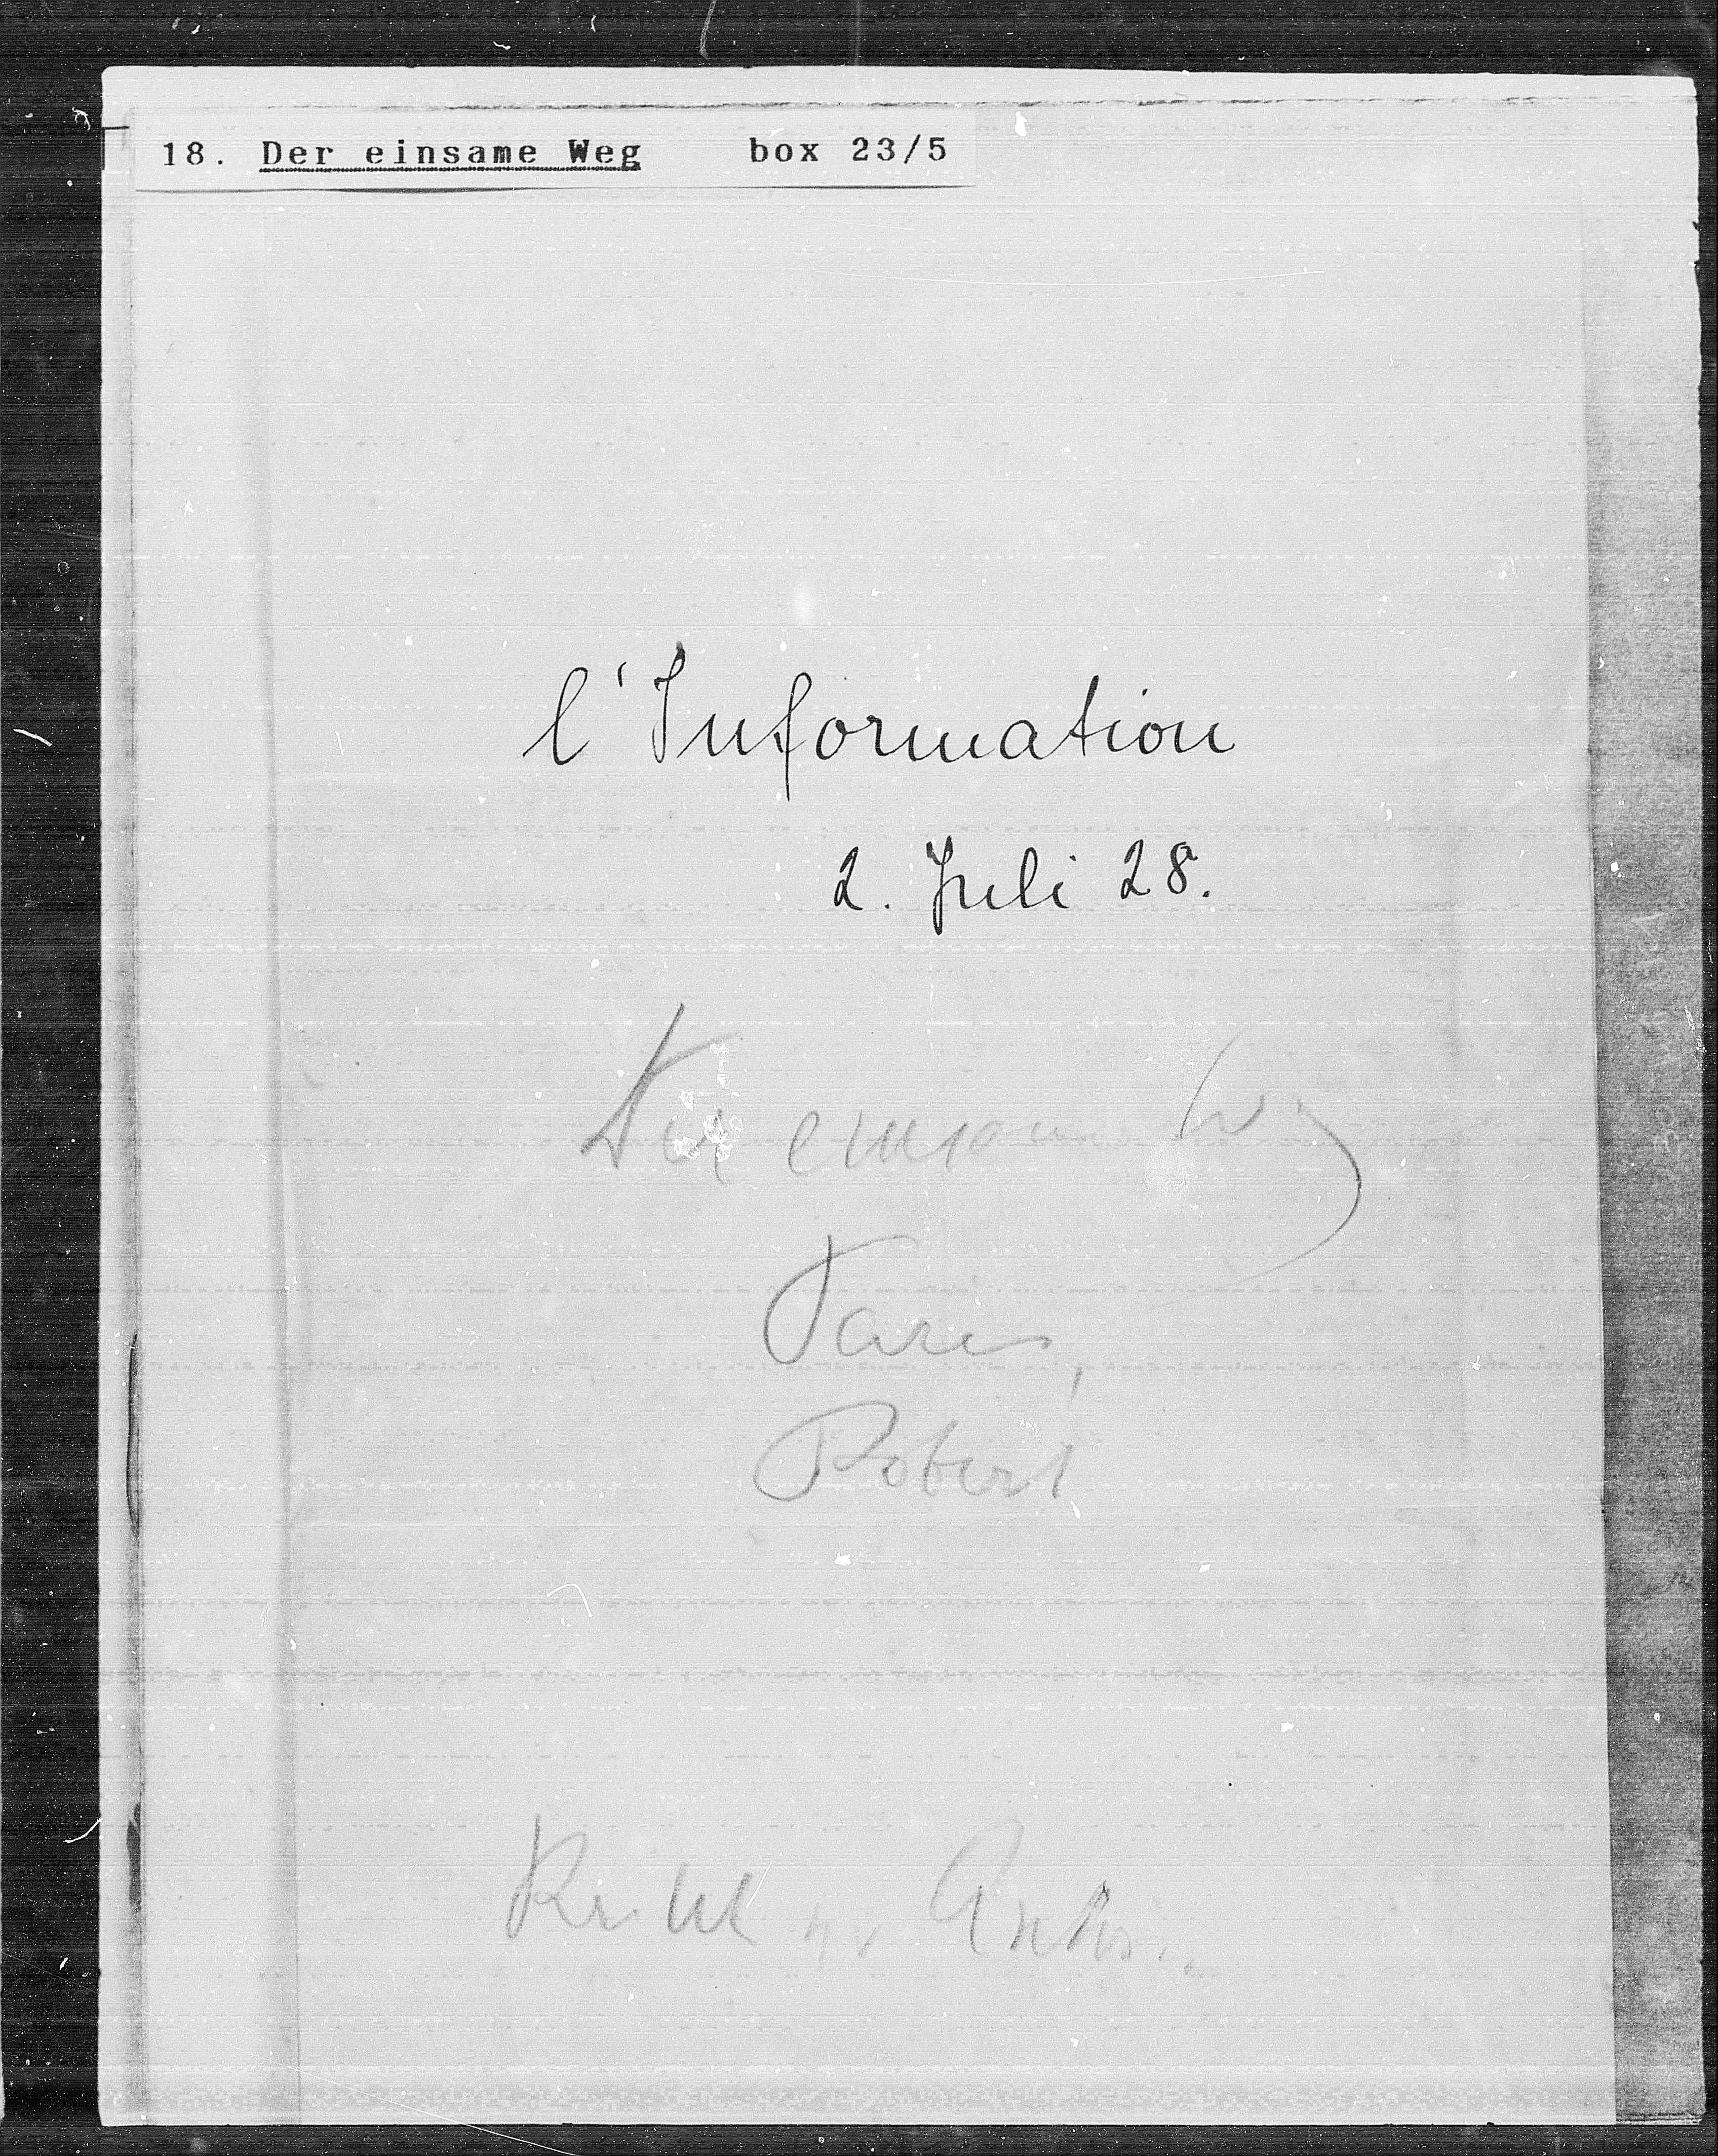 18. Der einsame Weg box 23/5
l'Information
2. Juli 28.
Der einsame Weg
Paris,
Robert